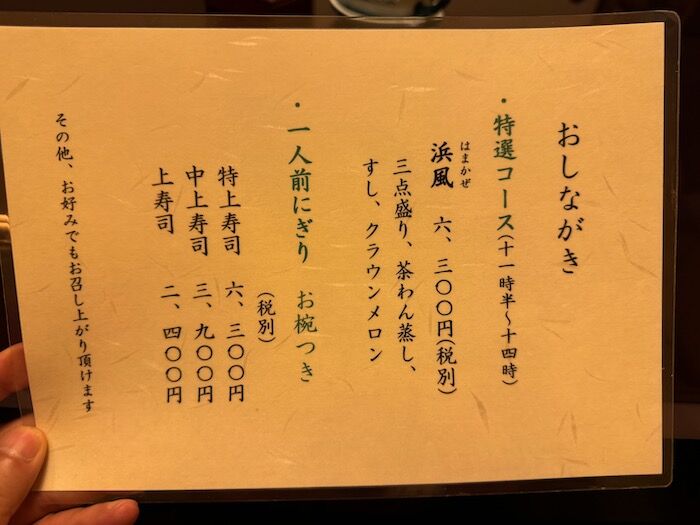 おしながき
・特選コース(十一時半〜十四時)
はまかぜ
浜風 六、三〇〇円(税別)
三点盛り、茶わん蒸し、
すし、クラウンメロン
・一人前にぎり お椀つき
(税別)
特上寿司 六、三〇〇円
中上寿司 三、九〇〇円
上寿司 二、四〇〇円
その他、お好みでもお召し上がり頂けます